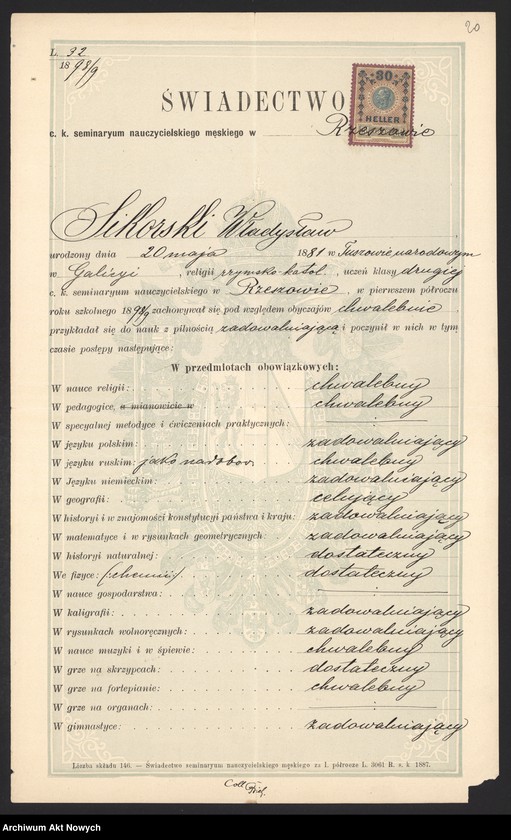 20
L. 32
1898/9
80
HELLER
ŚWIADECTWO
c. k. seminaryum nauczycielskiego męskiego w Rzeszowie
Sikorski Władysław
urodzony dnia 20 maja 1881 w Tuszowie narodowym
w Galicyi, religii rzymsko katol., uczeń klasy drugiej
c. k. seminaryum nauczycielskiego w Rzeszowie, w pierwszem półroczu
roku szkolnego 1898/9 zachowywał się pod względem obyczajów chwalebnie
przykładał się do nauk z pilnością zadowalniającą i poczynił w nich w tym
czasie postępy następujące:
W przedmiotach obowiązkowych:
W nauce religii: chwalebny
W pedagogice, a mianowicie w chwalebny
W specyalnej metodyce i ćwiczeniach praktycznych:
W języku polskim: zadowalniający
W języku ruskim: jako nadobow. chwalebny
W Języku niemieckim: zadowalniający
W geografii: celujący
W historyi i w znajomości konstytucyi państwa i kraju: zadowalniający
W matematyce i w rysunkach geometrycznych: zadowalniający
W historyi naturalnej: dostateczny
We fizyce: (chemii) dostateczny
W nauce gospodarstwa:
W kaligrafii: zadowalniający
W rysunkach wolnoręcznych: zadowalniający
W nauce muzyki i w śpiewie: chwalebny
W grze na skrzypcach: dostateczny
W grze na fortepianie: chwalebny
W grze na organach:
W gimnastyce: zadowalniający
Liczba składu 146. — Świadectwo seminaryum nauczycielskiego męskiego za I. półrocze L. 3061 R. s. k 1887.
Archiwum Akt Nowych